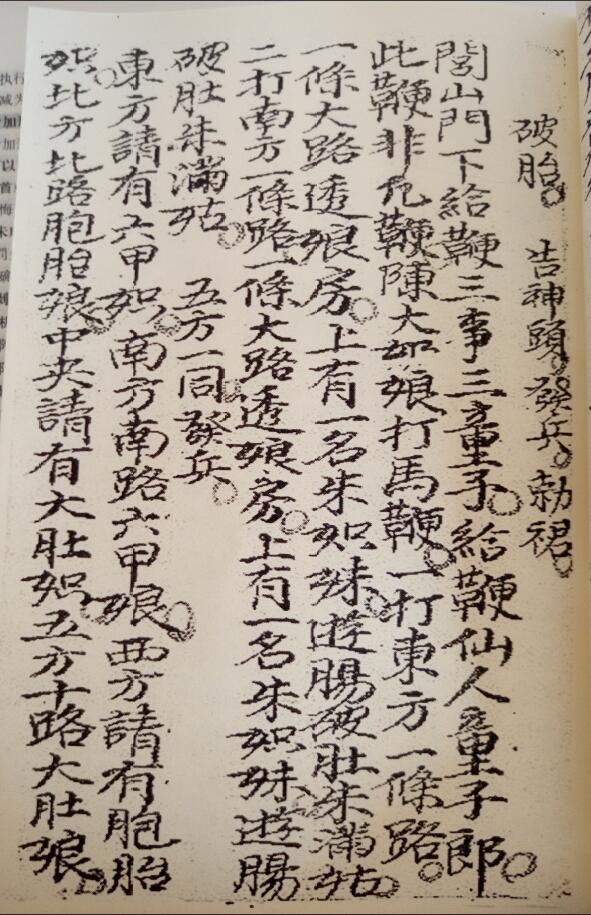 破胎。 告神頭。發兵。勅裙。
閭山門下給鞭三事三童子。給鞭仙人童子郎。
此鞭非凢鞭陳大奶娘打馬鞭。一打東方一條路。
一條大路透娘房。上有一名朱奶妹。遊腸破肚朱滿姑。
二打南方一條路一條大路透娘房。上有一名朱奶妹遊腸
破肚朱滿姑。 五方一同發兵。
東方請有六甲奶。南方南路六甲娘。西方請有胞胎
奶北方北路胞胎娘。中央請有大肚奶。五方十路大肚娘。